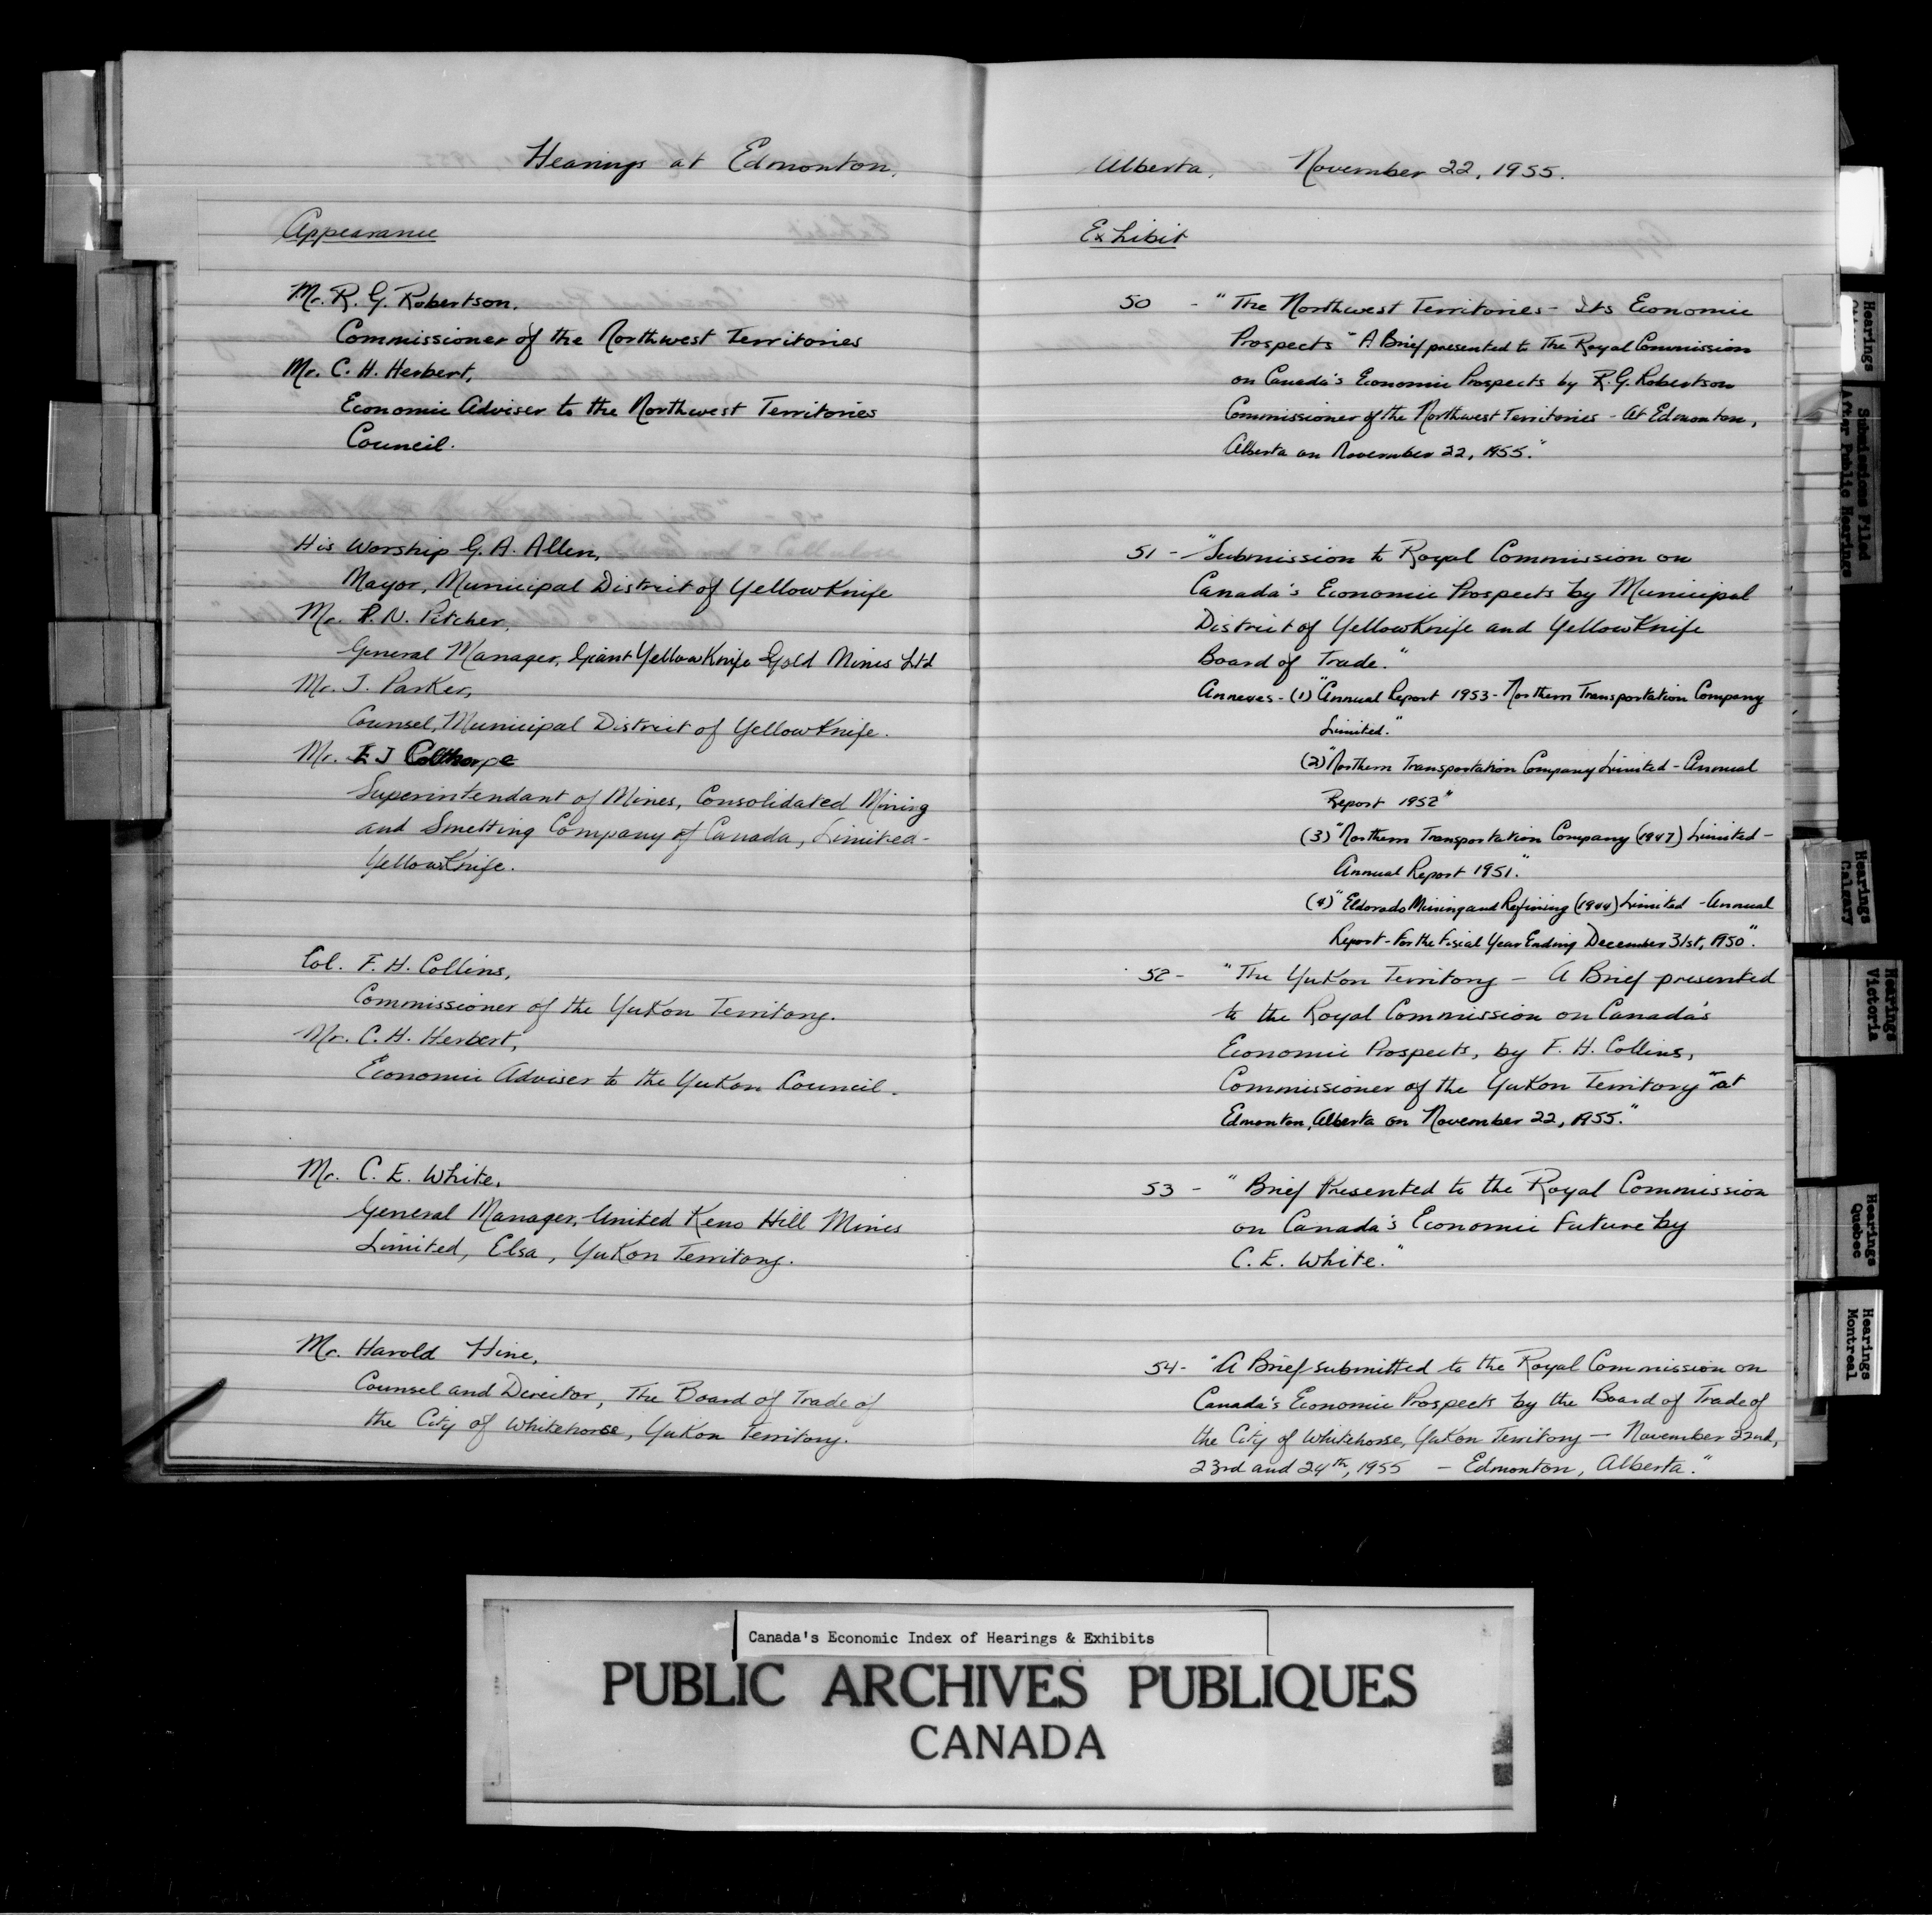 Hearings at Edmonton,
Appearance
Mr. R. G. Robertson,
Commissioner of the Northwest Territories
Mr. C. H. Herbert,
Economic Adviser to the Northwest Territories
Council.
His Worship G. A. Allen,
Mayor, Municipal District of YellowKnife
Mr. P. N. Pitcher,
General Manager, Giant YellowKnife Gold Mines Ltd
Mr. J. Parker,
Counsel, Municipal District of YellowKnife.
Mr. E J Colthorpe
Superintendant of Mines, Consolidated Mining
and Smelting Company of Canada, Limited-
YellowKnife.
Col. F. H. Collins,
Commissioner of the Yukon Territory.
Mr. C. H. Herbert,
Economic Adviser to the Yukon Council.
Mr. C. E. White,
General Manager, United Keno Hill Mines
Limited, Elsa, Yukon Territory.
Mr. Harold Hine,
Counsel and Director, The Board of Trade of
the City of Whitehorse, Yukon Territory.
Alberta, November 22, 1955.
Exhibit
50 - "The Northwest Territories - Its Economic
Prospects" A Brief presented to The Royal Commission
on Canada's Economic Prospects by R. G. Robertson
Commissioner of the Northwest Territories - At Edmonton,
Alberta on November 22, 1955."
51 - "Submission to Royal Commission on
Canada's Economic Prospects by Municipal
District of YellowKnife and YellowKnife
Board of Trade."
Annexes - (1) "Annual Report 1953 - Northern Transportation Company
Limited."
(2) "Northern Transportation Company Limited - Annual
Report 1952"
(3) "Northern Transportation Company (1947) Limited -
Annual Report 1951."
(4) "Eldorado Mining and Refining (1944) Limited - Annual
Report - For the Fiscal Year Ending December 31st, 1950".
52 - "The Yukon Territory - A Brief presented
to the Royal Commission on Canada's
Economic Prospects, by F. H. Collins,
Commissioner of the Yukon Territory" at
Edmonton, Alberta on November 22, 1955."
53 - "Brief Presented to the Royal Commission
on Canada's Economic Future by
C. E. White."
54 - "A Brief submitted to the Royal Commission on
Canada's Economic Prospects by the Board of Trade of
the City of Whitehorse, Yukon Territory - November 22nd,
23rd and 24th, 1955 - Edmonton, Alberta."
Hearings
Submissions Filed
After Public Hearings
Hearings
Calgary
Hearings
Victoria
Hearings
Quebec
Hearings
Montreal
Canada's Economic Index of Hearings & Exhibits
PUBLIC ARCHIVES PUBLIQUES
CANADA